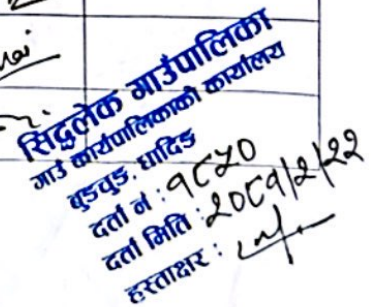 सिद्धलेक गाउँपालिका
गाउँ कार्यपालिकाको कार्यालय
थुङचुङ, धादिङ
दर्ता नं : १८५०
दर्ता मिति : २०८१/२/२२
हस्ताक्षर :